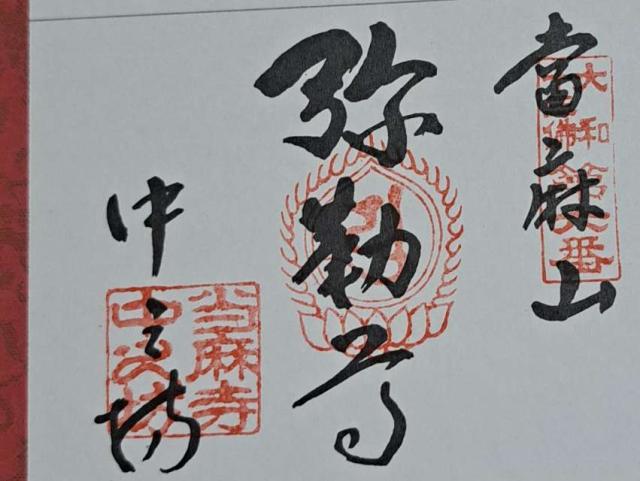 當麻山
大和
佛
第六番
弥勒尊
中之坊
当麻寺
中之坊